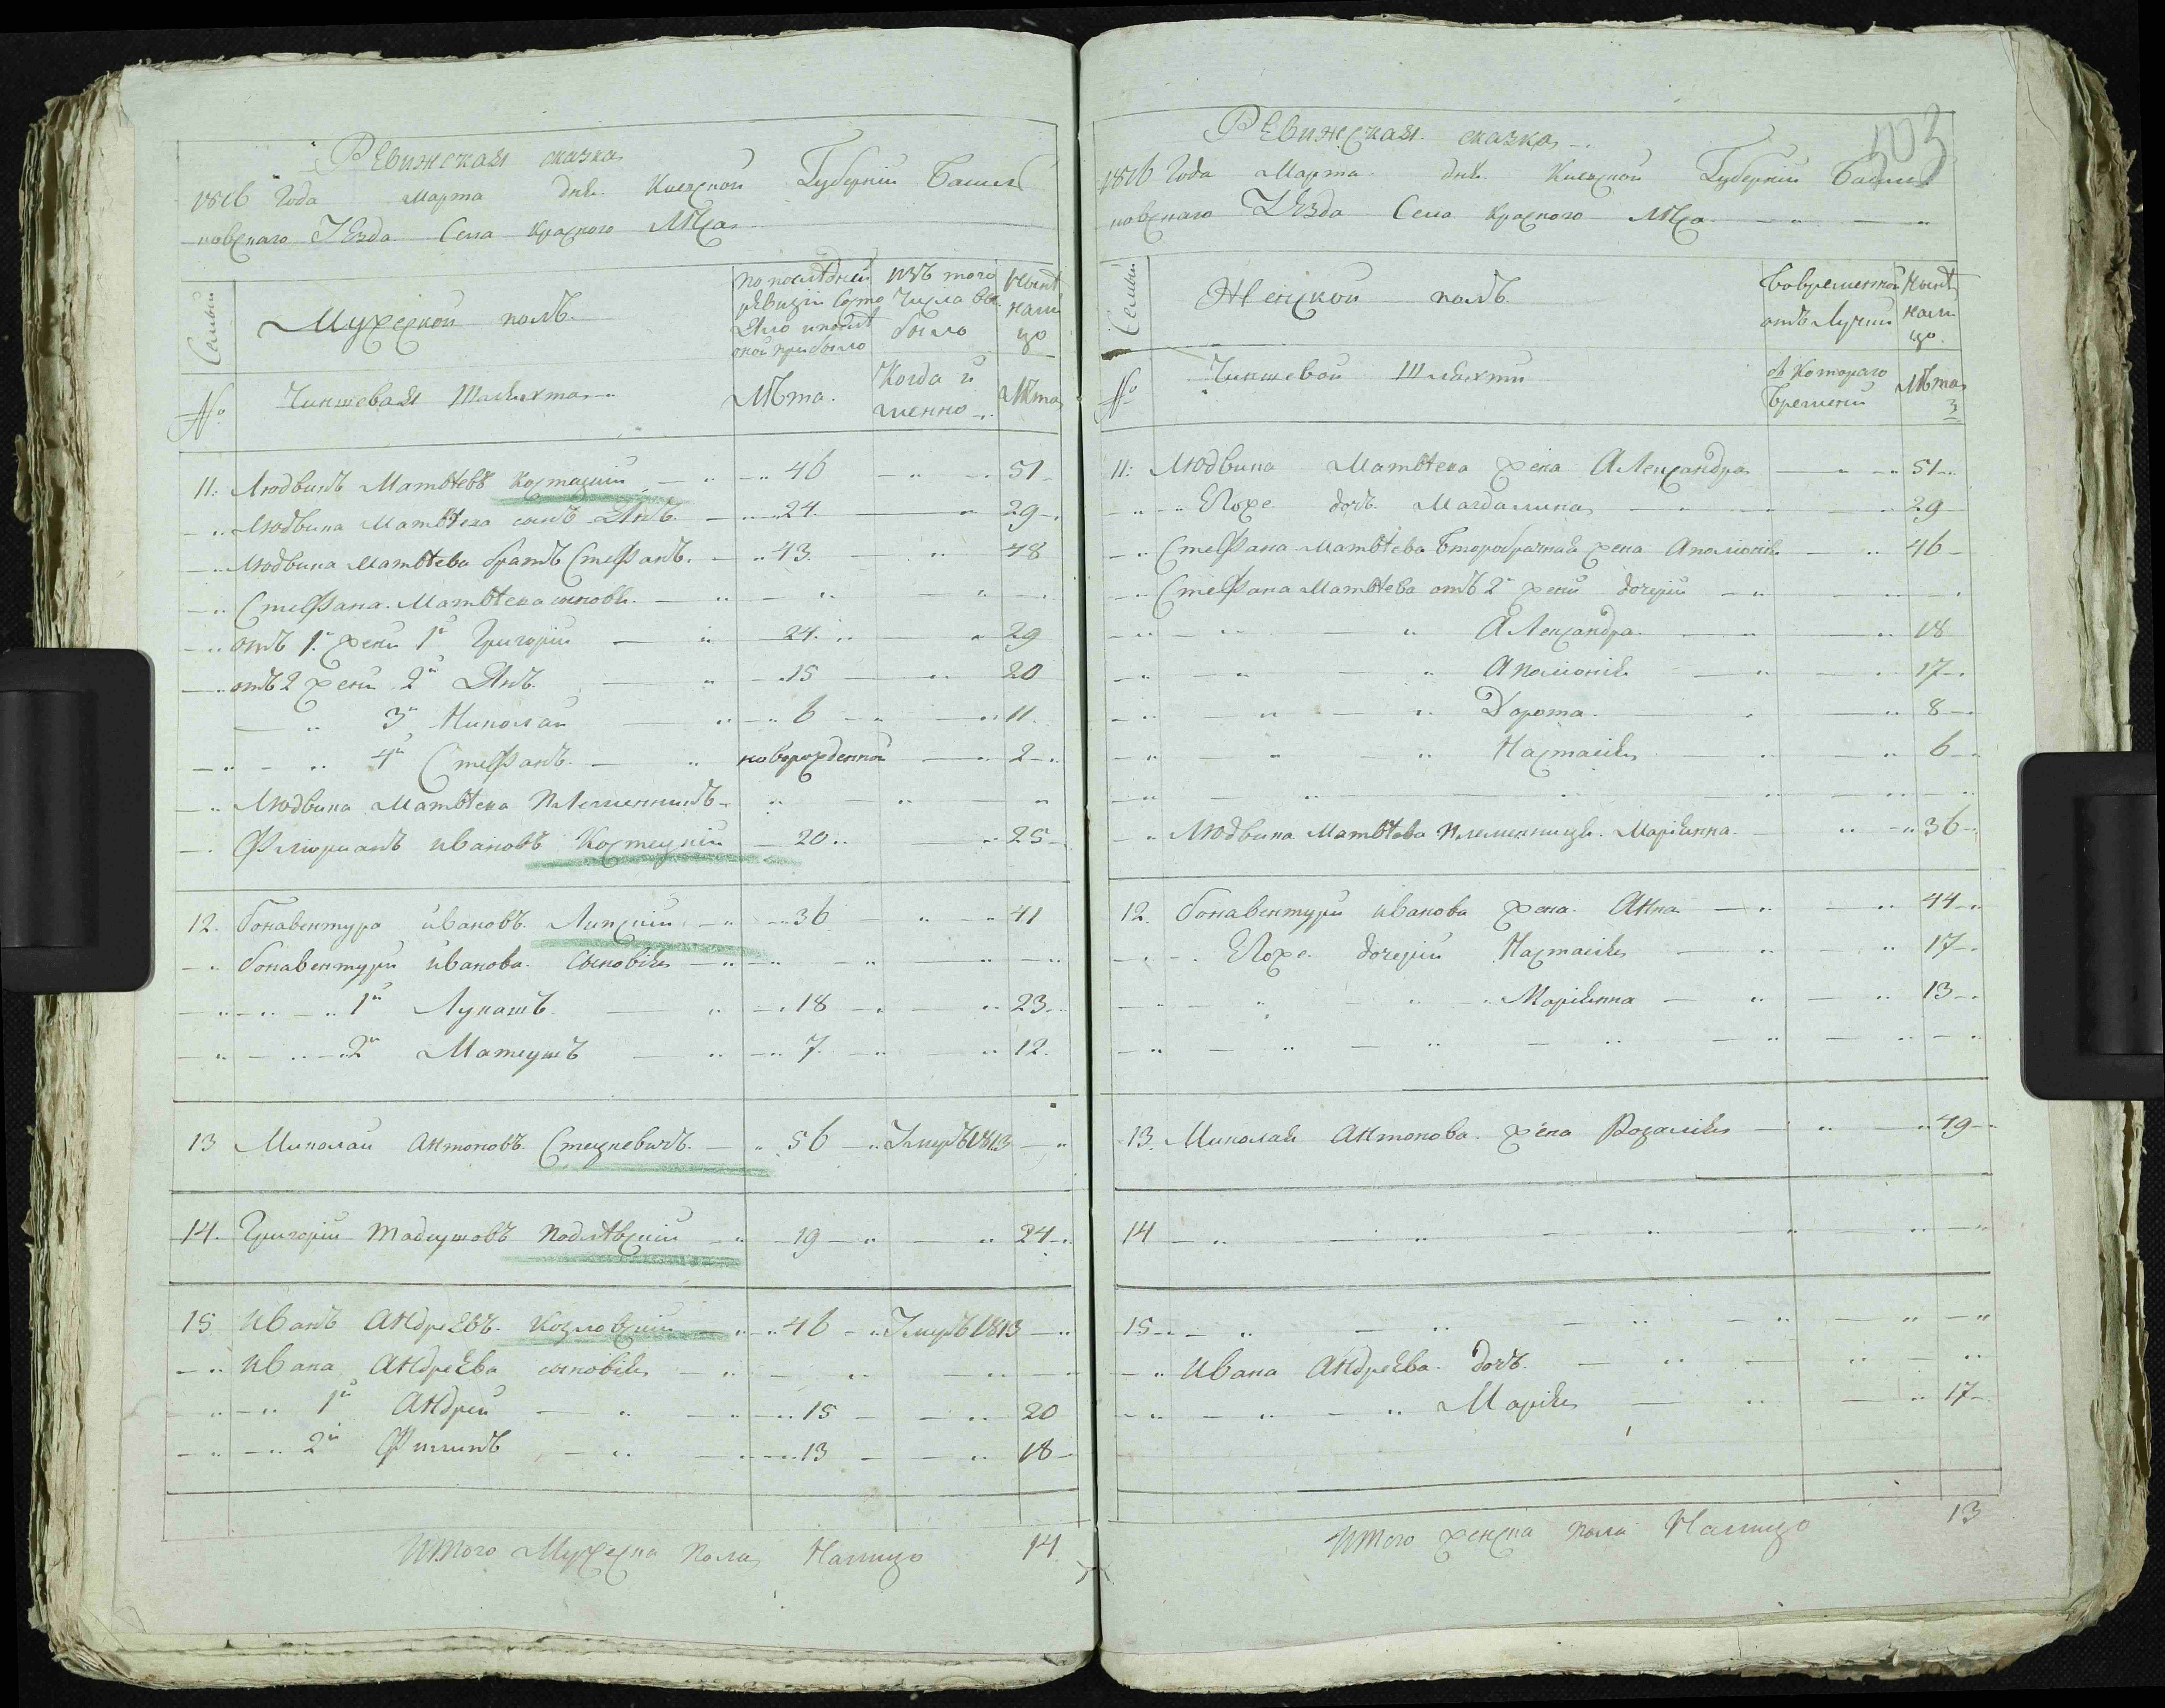 Ревижская сказка
1816 Года Марта дня Киевской Губерніи Васил
ковскаго Уѣзда Села Красного Лѣса
Семьи
Мужеской полъ
по последней ревизіи состо яло и после оной прибыло
изъ того числа вы было
Нынѣ нали цо
№
Чиншевая Шляхта
Лѣта
Когда и менно
Лѣта
11. Людвикъ Матвѣевъ Костецкій 46 51
Людвика Матвѣева сынъ Янъ 24 29
Людвика Матвѣева братъ Стефанъ 43 48
Стефана Матвѣева сыновя
отъ 1 жены 1й Григорій 24 29
отъ 2 жены 2й Янъ 15 20
3й Николай 6 11
4й Стефанъ новорожденной 2
Людвика Матвѣева племенникъ
Флюріанъ Ивановъ Костецкій 20 25
12. Бонавентура Ивановъ Липскій 36 41
Бонавентуры Иванова сыновія
1й Лукашъ 18 23
2й Матеушъ 7 12
13 Миколай Антоновъ Стецкевичъ 56 Умеръ 1813
14. Григорій Тадеушовъ Подлѣвскій 19 24
15 Иванъ Андреевъ Козловскій 46 Умеръ 1813
Ивана Андреева сыновія
1й Андрей 15 20
2й Филипъ 13 18
Итого Мужеска Пола Налицо 14
103
Ревижская сказка
1816 Года Марта дня Киевской Губерніи Васил
ковскаго Уѣзда Села Красного Лѣса
Семьи
Женской полъ
Вовременной отъ Лучки
Нынѣ нали цо
№
Чиншевой Шляхти
съ Котораго Времени
Лѣта
3
11: Людвика Матвѣева жена Александра 51
Егоже дочь Магдалина 29
Стефана Матвѣева Второбрачная жена Аполіонія 46
Стефана Матвѣева отъ 2й жены дочери
Александра 18
Аполіонія 17
Дорота 8
Настасія 6
Людвика Матвѣева племенница Маріянна 36
12. Бонавентуры Иванова жена Анна 44
Егоже дочери Настасія 17
Маріянна 13
13. Миколая Антонова жена Розалія 49
14
15
Ивана Андреева дочь
Марія 17
Итого женска пола Налицо 13